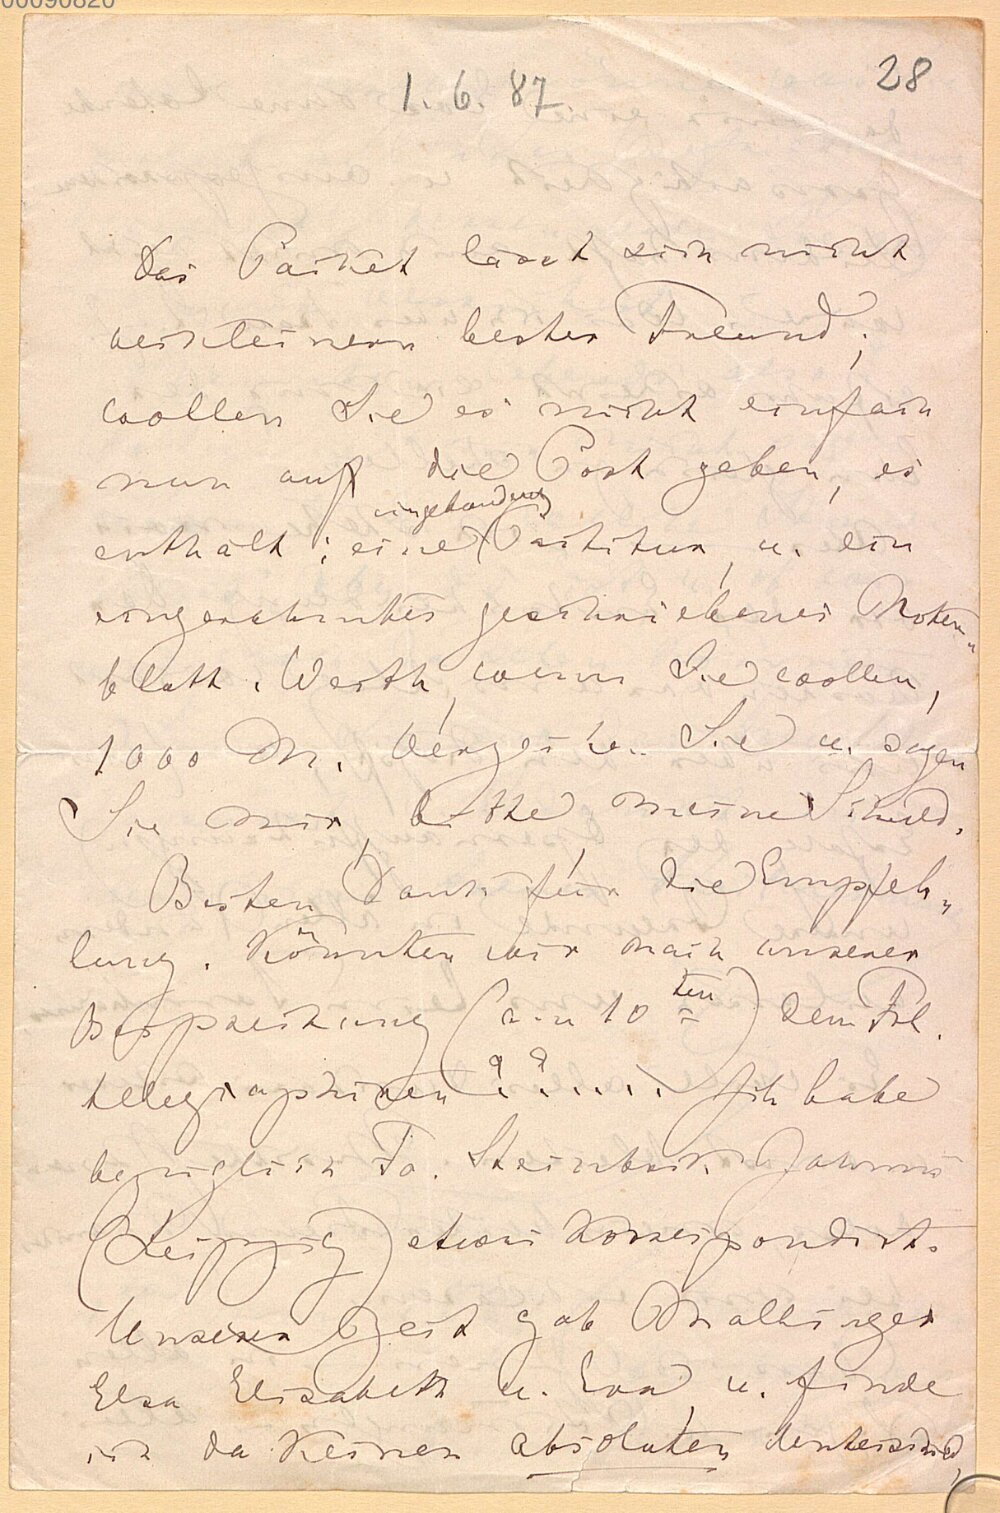 00090820
1. 6. 87
28
Das Packet lässt sich nicht
verkleinern bester Freund;
wollen Sie es nicht einfach
nun auf die Post geben, es
eingebundene
enthält: eine Partitur, u. ein
eingerahmtes geschriebenes Noten-
blatt. Werth, wenn Sie wollen,
1000 M. Verzeihen Sie u. sagen
Sie mir, bitte meine Schuld.
Besten Dank für die Empfeh-
lung. Könnten wir nach unserer
Besprechung (am 10ten) dem Frl.
telegraphiren??.... Ich habe
bezüglich Fr. Steinbach Jahns
(Leipzig) etwas Korrespondirt.
Unserer Zeit gab Mallinger
Elsa Elisabeth u. Eva, u. finde
ich da keinen absoluten Unterschied,